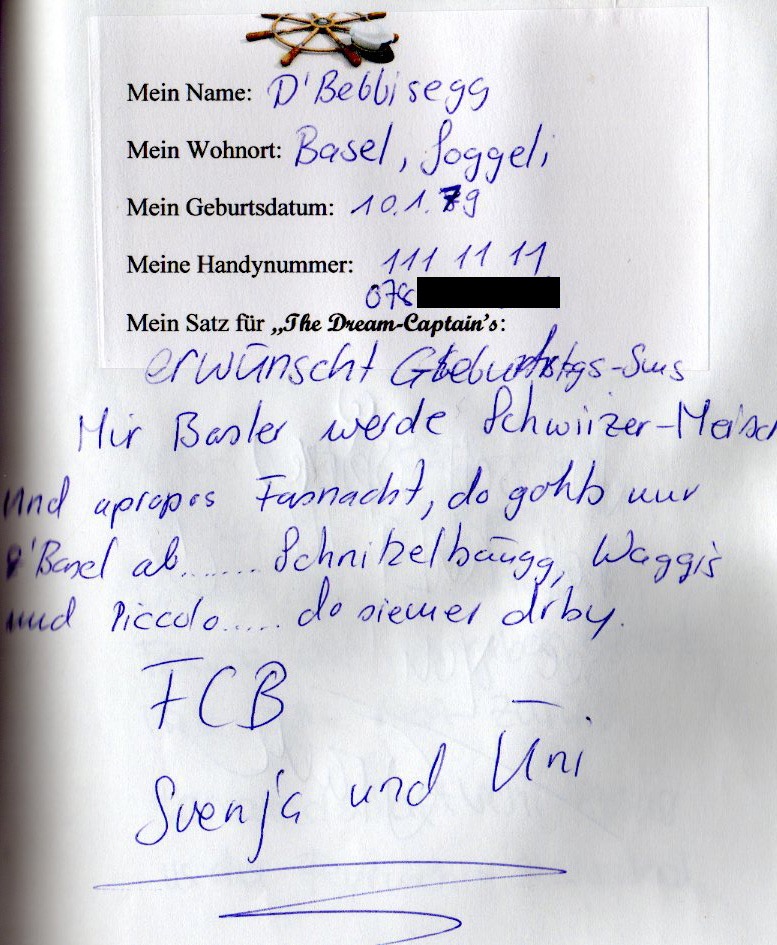 Mein Name: D'Bebbisegg
Mein Wohnort: Basel, Joggeli
Mein Geburtsdatum: 10.1.79
Meine Handynummer: 111 11 11
078
Mein Satz für „The Dream-Captain's:
erwünscht Geburtstags-Sms
Mir Basler werde Schwiizer-Meisch
Und apropos Fasnacht, do gohts nur
z'Basel ab....... Schnitzelbängg, Waggis
und Piccolo..... do siemer drby.
FCB
Svenja und Üni